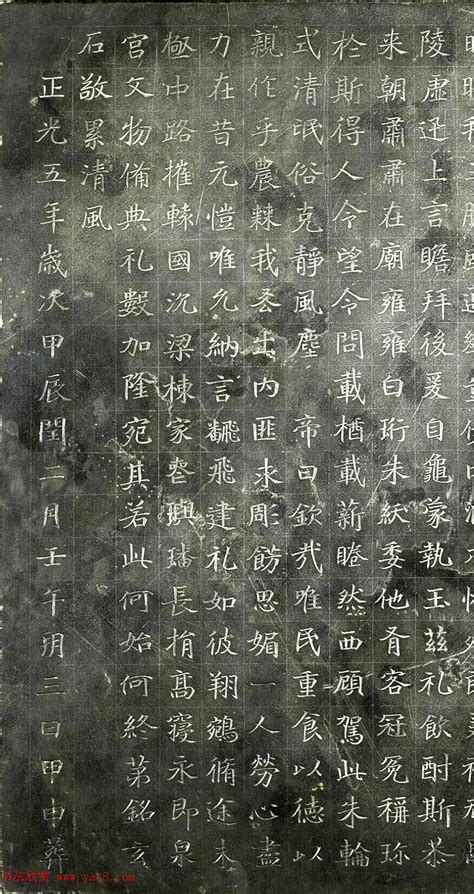 陵虛迅上言瞻拜後爰自龜蒙執玉茲礼飲酎斯恭
来朝肅肅在廟雍雍白珩朱紱委他胥容冠冕稱珎
扵斯得人令望令問載楢載薪睠然西顧駕此朱輪
式清氓俗克靜風塵 帝曰欽哉唯民重食以德以
親作乎農棘我出内匪求彫餝思媚一人勞心盡
力在昔元愷唯允納言飛建礼如彼翔鵷脩途未
極中路摧轅國沉梁棟家璵璠長捐高寢永即泉
宫文物備典礼數加隆宛其若此何始何終第銘玄
石敬累清風
正光五年歲次甲辰閏二月壬午朔三日甲申葬
书法欣赏 www.yac8.com